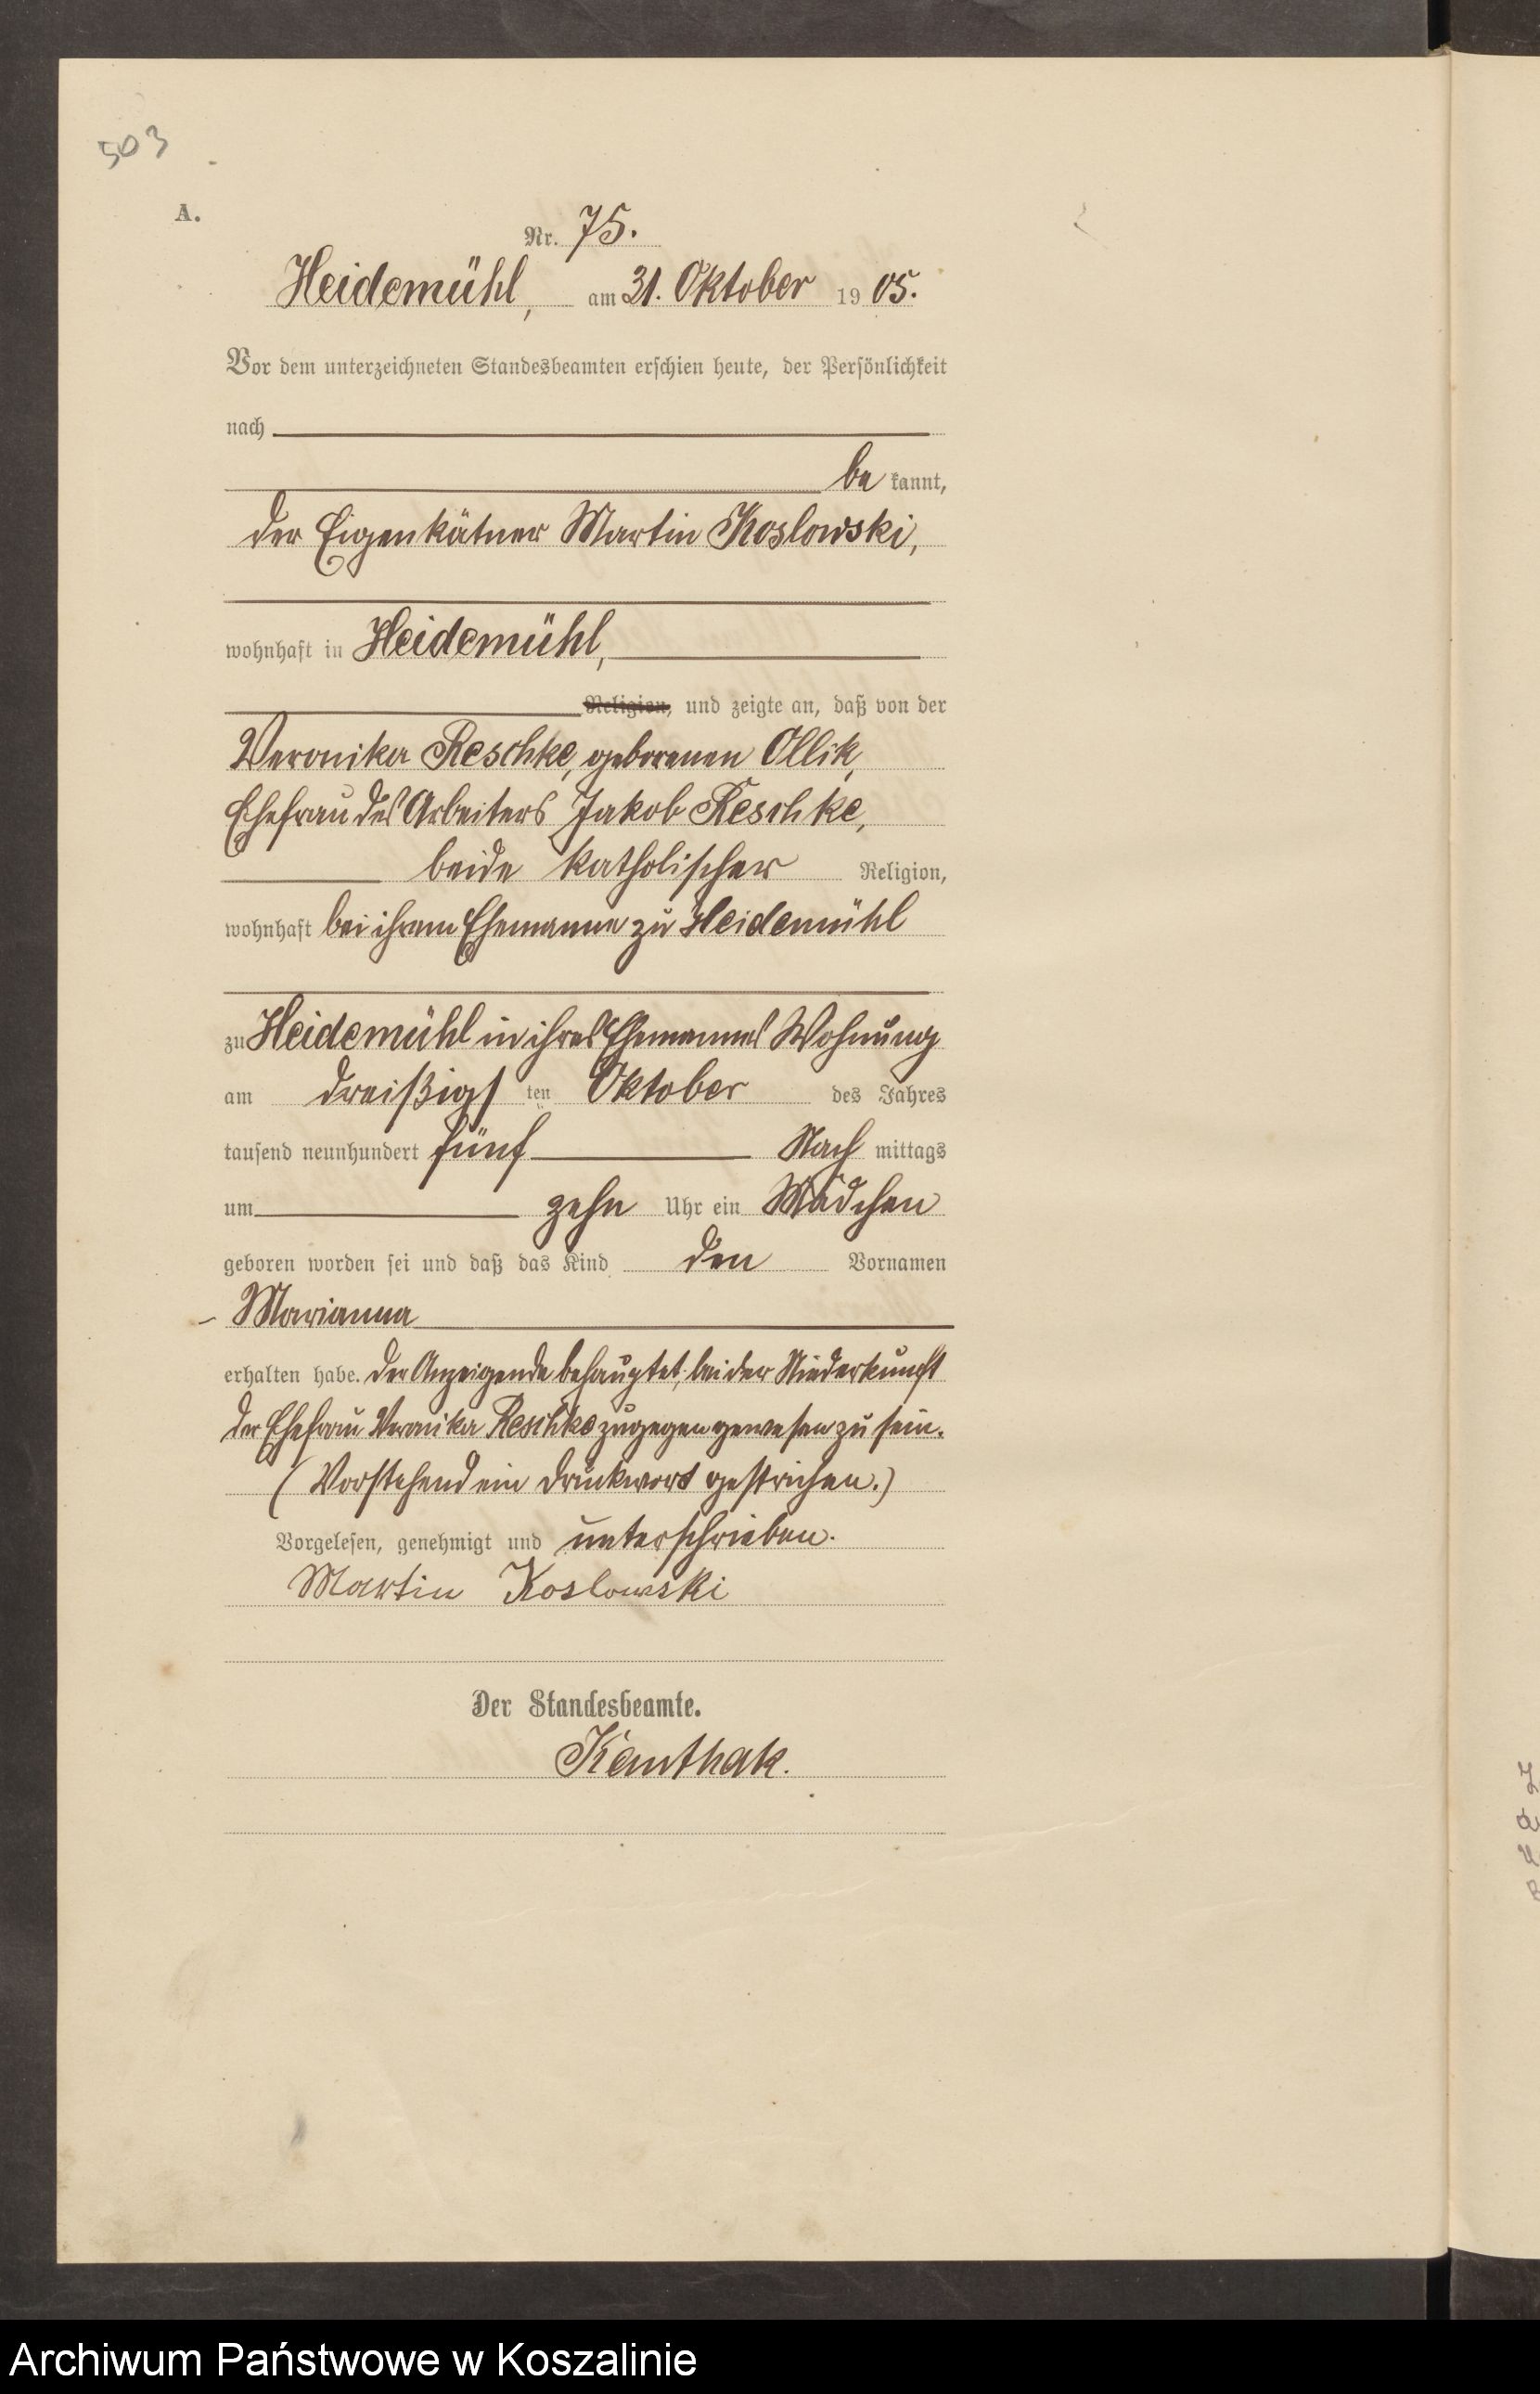 503
A.
Nr. 75.
Heidemühl, am 31. Oktober 1905.
Vor dem unterzeichneten Standesbeamten erschien heute, der Persönlichkeit
nach
bekannt,
der Eigenkätner Martin Koslowski,
wohnhaft in Heidemühl,
Religion, und zeigte an, daß von der
Veronika Reschke, geborenen Ollik,
Ehefrau des Arbeiters Jakob Reschke,
beide katholischer Religion,
wohnhaft bei ihrem Ehemanne zu Heidemühl
zu Heidemühl in ihres Ehemannes Wohnung
am dreißigsten Oktober des Jahres
tausend neunhundert fünf Nachmittags
um zehn Uhr ein Mädchen
geboren worden sei und daß das Kind den Vornamen
Marianna
erhalten habe. Der Anzeigende behauptet, bei der Niederkunft
der Ehefrau Veronika Reschke zugegen gewesen zu sein.
(Vorstehend ein Druckwort gestrichen.)
Vorgelesen, genehmigt und unterschrieben.
Martin Koslowski
Der Standesbeamte.
Kanthak.
Archiwum Państwowe w Koszalinie